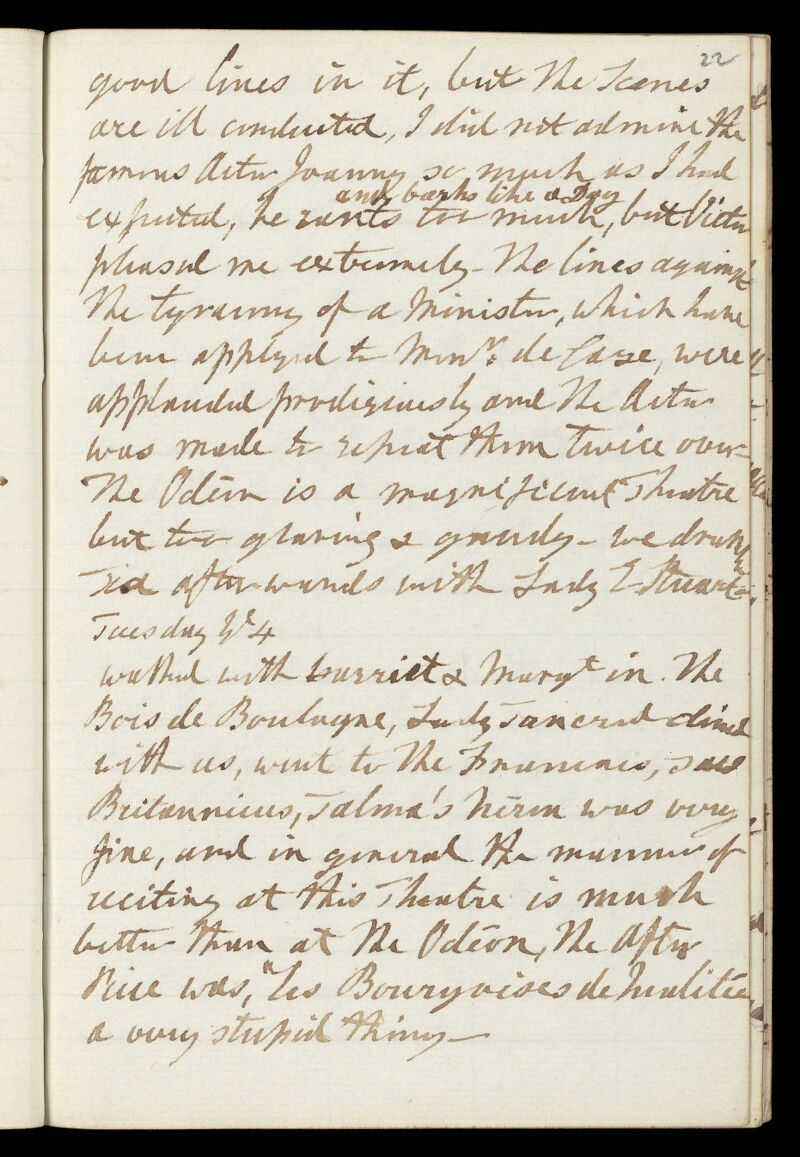 22
good lines in it, but the Scenes
are ill conducted, I did not admire the
famous Actor Joanny so much as I had
and barks like a Dog
expected, he rants too much, but Victor
pleased me extremely - the lines against
the tyranny of a Minister, which have
been applyed to Monr. de Caze, were
applauded prodigiously and the Actor
was made to repeat them twice over -
The Odéon is a magnificent Theatre
but too glaring & gaudy - we drank
Tea afterwards with Lady E Stuart -
Tuesday 4
walked with Harriet & Margt in the
Bois de Boulogne, Lady Tancred dined
with us, went to the Francais, saw
Britannicus, Talma's Néron was very
fine, and in general the manner of
reciting at this Theatre is much
better than at the Odéon, the After
Piece was, "Les Bourgeoises de Qualitée
a very stupid thing -